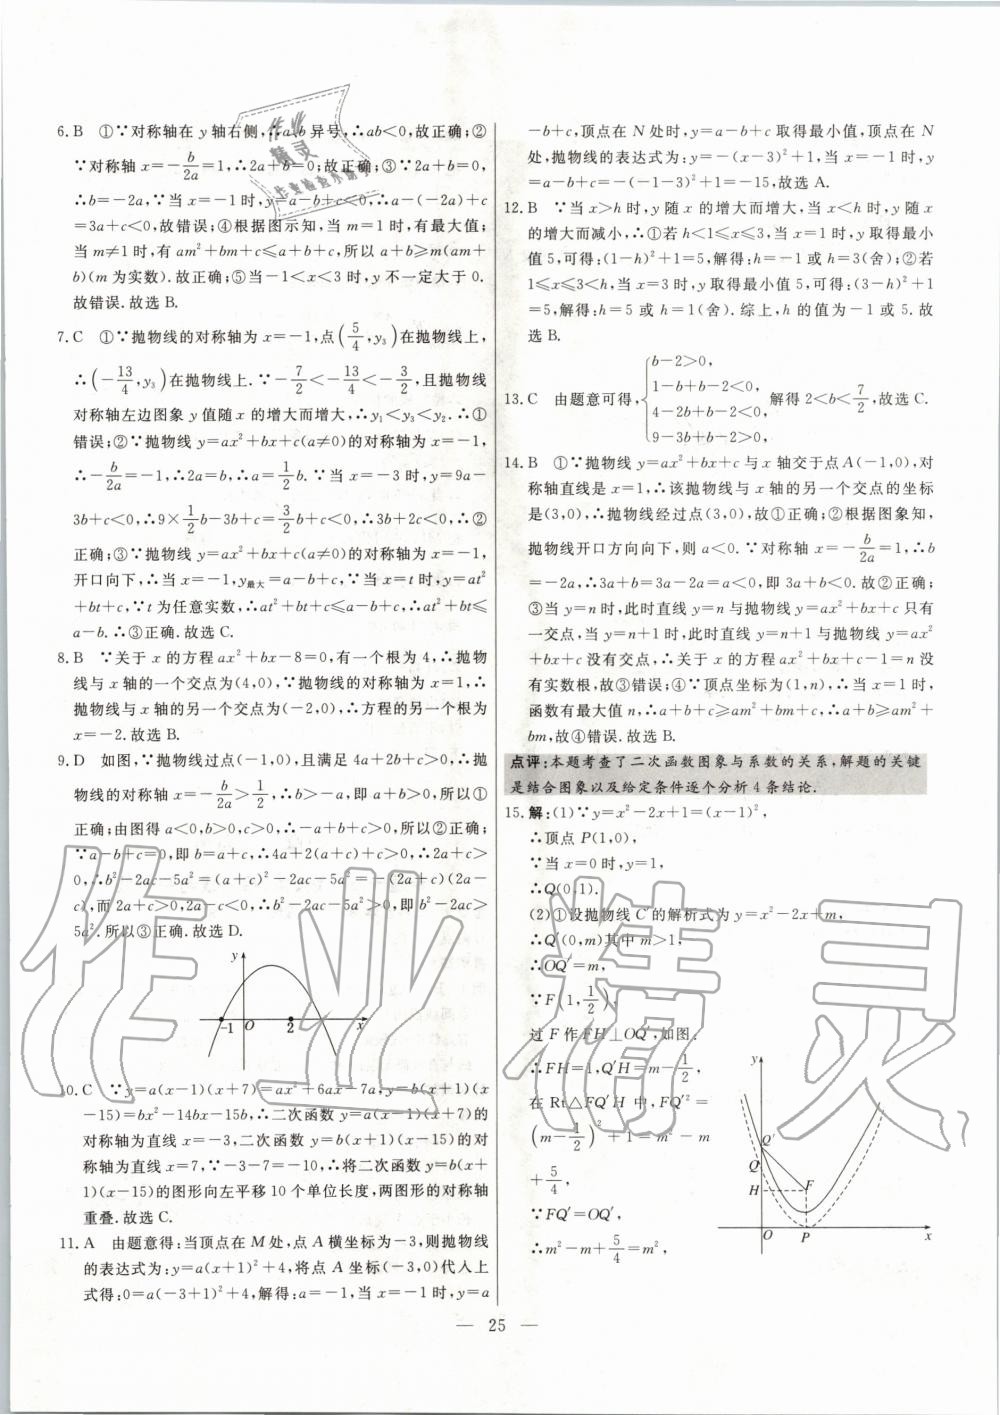 6. B　①∵对称轴在 y 轴右侧,∴a、b 异号,∴ab<0,故正确;②
∵对称轴 x=-b/2a=1,∴2a+b=0;故正确;③∵2a+b=0,
∴b=-2a,∵当 x=-1 时,y=a-b+c<0,∴a-(-2a)+c
=3a+c<0,故错误;④根据图示知,当 m=1 时,有最大值;
当 m≠1 时,有 am²+bm+c≤a+b+c,所以 a+b≥m(am+
b)(m 为实数).故正确;⑤当-1<x<3 时,y 不一定大于 0.
故错误.故选 B.
7. C　①∵抛物线的对称轴为 x=-1,点(5/4,y₃)在抛物线上,
∴(-13/4,y₃)在抛物线上.∵-7/2<-13/4<-3/2,且抛物线
对称轴左边图象 y 值随 x 的增大而增大,∴y₁<y₃<y₂.∴①
错误;②∵抛物线 y=ax²+bx+c(a≠0)的对称轴为 x=-1,
∴-b/2a=-1,∴2a=b,∴a=1/2b.∵当 x=-3 时,y=9a-
3b+c<0,∴9×1/2b-3b+c=3/2b+c<0,∴3b+2c<0,∴②
正确;③∵抛物线 y=ax²+bx+c(a≠0)的对称轴为 x=-1,
开口向下,∴当 x=-1,y最大=a-b+c,∴当 x=t 时,y=at²
+bt+c,∵t 为任意实数,∴at²+bt+c≤a-b+c,∴at²+bt≤
a-b.∴③正确.故选 C.
8. B　∵关于 x 的方程 ax²+bx-8=0,有一个根为 4,∴抛物
线与 x 轴的一个交点为(4,0),∵抛物线的对称轴为 x=1,∴
抛物线与 x 轴的另一个交点为(-2,0),∴方程的另一个根为
x=-2.故选 B.
9. D　如图,∵抛物线过点(-1,0),且满足 4a+2b+c>0,∴抛
物线的对称轴 x=-b/2a>1/2,∴b>-a,即 a+b>0,所以①
正确;由图得 a<0,b>0,c>0,∴-a+c>0,所以②正确;
∵a-b+c=0,即 b=a+c,∴4a+2(a+c)+c>0,∴2a+c>
0,∴b²-2ac-5a²=(a+c)²-2ac-5a²=-(2a+c)(2a-
c),而 2a+c>0,2a-c<0,∴b²-2ac-5a²>0,即 b²-2ac>
5a².所以③正确.故选 D.
y
-1 O 2 x
10. C　∵y=a(x-1)(x+7)=ax²+6ax-7a,y=b(x+1)(x
-15)=bx²-14bx-15b,∴二次函数 y=a(x-1)(x+7)的
对称轴为直线 x=-3,二次函数 y=b(x+1)(x-15)的对
称轴为直线 x=7,∵-3-7=-10,∴将二次函数 y=b(x+
1)(x-15)的图形向左平移 10 个单位长度,两图形的对称轴
重叠.故选 C.
11. A　由题意得:当顶点在 M 处,点 A 横坐标为-3,则抛物线
的表达式为:y=a(x+1)²+4,将点 A 坐标(-3,0)代人上
式得:0=a(-3+1)²+4,解得:a=-1,当 x=-1 时,y=a
-b+c,顶点在 N 处时,y=a-b+c 取得最小值,顶点在 N
处,抛物线的表达式为:y=-(x-3)²+1,当 x=-1 时,y
=a-b+c=-(-1-3)²+1=-15,故选 A.
12. B　∵当 x>h 时,y 随 x 的增大而增大,当 x<h 时,y 随 x
的增大而减小,∴①若 h<1≤x≤3,当 x=1 时,y 取得最小
值 5,可得:(1-h)²+1=5,解得:h=-1 或 h=3(舍);②若
1≤x≤3<h,当 x=3 时,y 取得最小值 5,可得:(3-h)²+1
=5,解得:h=5 或 h=1(舍).综上,h 的值为-1 或 5.故
选 B.
b-2>0,
1-b+b-2<0,
13. C　由题意可得,{　解得 2<b<7/2,故选 C.
4-2b+b-2<0,
9-3b+b-2>0,
14. B　①∵抛物线 y=ax²+bx+c 与 x 轴交于点 A(-1,0),对
称轴直线是 x=1,∴该抛物线与 x 轴的另一个交点的坐标
是(3,0),∴抛物线经过点(3,0),故①正确;②根据图象知,
抛物线开口方向向下,则 a<0.∵对称轴 x=-b/2a=1,∴b
=-2a,∴3a+b=3a-2a=a<0,即 3a+b<0.故②正确;
③当 y=n 时,此时直线 y=n 与抛物线 y=ax²+bx+c 只有
一交点,当 y=n+1 时,此时直线 y=n+1 与抛物线 y=ax²
+bx+c 没有交点,∴关于 x 的方程 ax²+bx+c-1=n 没
有实数根,故③错误;④∵顶点坐标为(1,n),∴当 x=1 时,
函数有最大值 n,∴a+b+c≥am²+bm+c,∴a+b≥am²+
bm,故④错误.故选 B.
点评:本题考查了二次函数图象与系数的关系,解题的关键
是结合图象以及给定条件逐个分析 4 条结论.
15. 解:(1)∵y=x²-2x+1=(x-1)²,
∴顶点 P(1,0),
∵当 x=0 时,y=1,
∴Q(0,1).
(2)①设抛物线 C′的解析式为 y=x²-2x+m,
∴Q′(0,m)其中 m>1,
∴OQ′=m,
∵F(1,1/2),
过 F 作 FH⊥OQ′,如图:
∴FH=1,Q′H=m-1/2,
在 Rt△FQ′H 中,FQ′²=
(m-1/2)²+1=m²-m
+5/4,
∵FQ′=OQ′,
∴m²-m+5/4=m²,
y
Q′
Q
H F
O P x
— 25 —
作业精灵
作业精灵